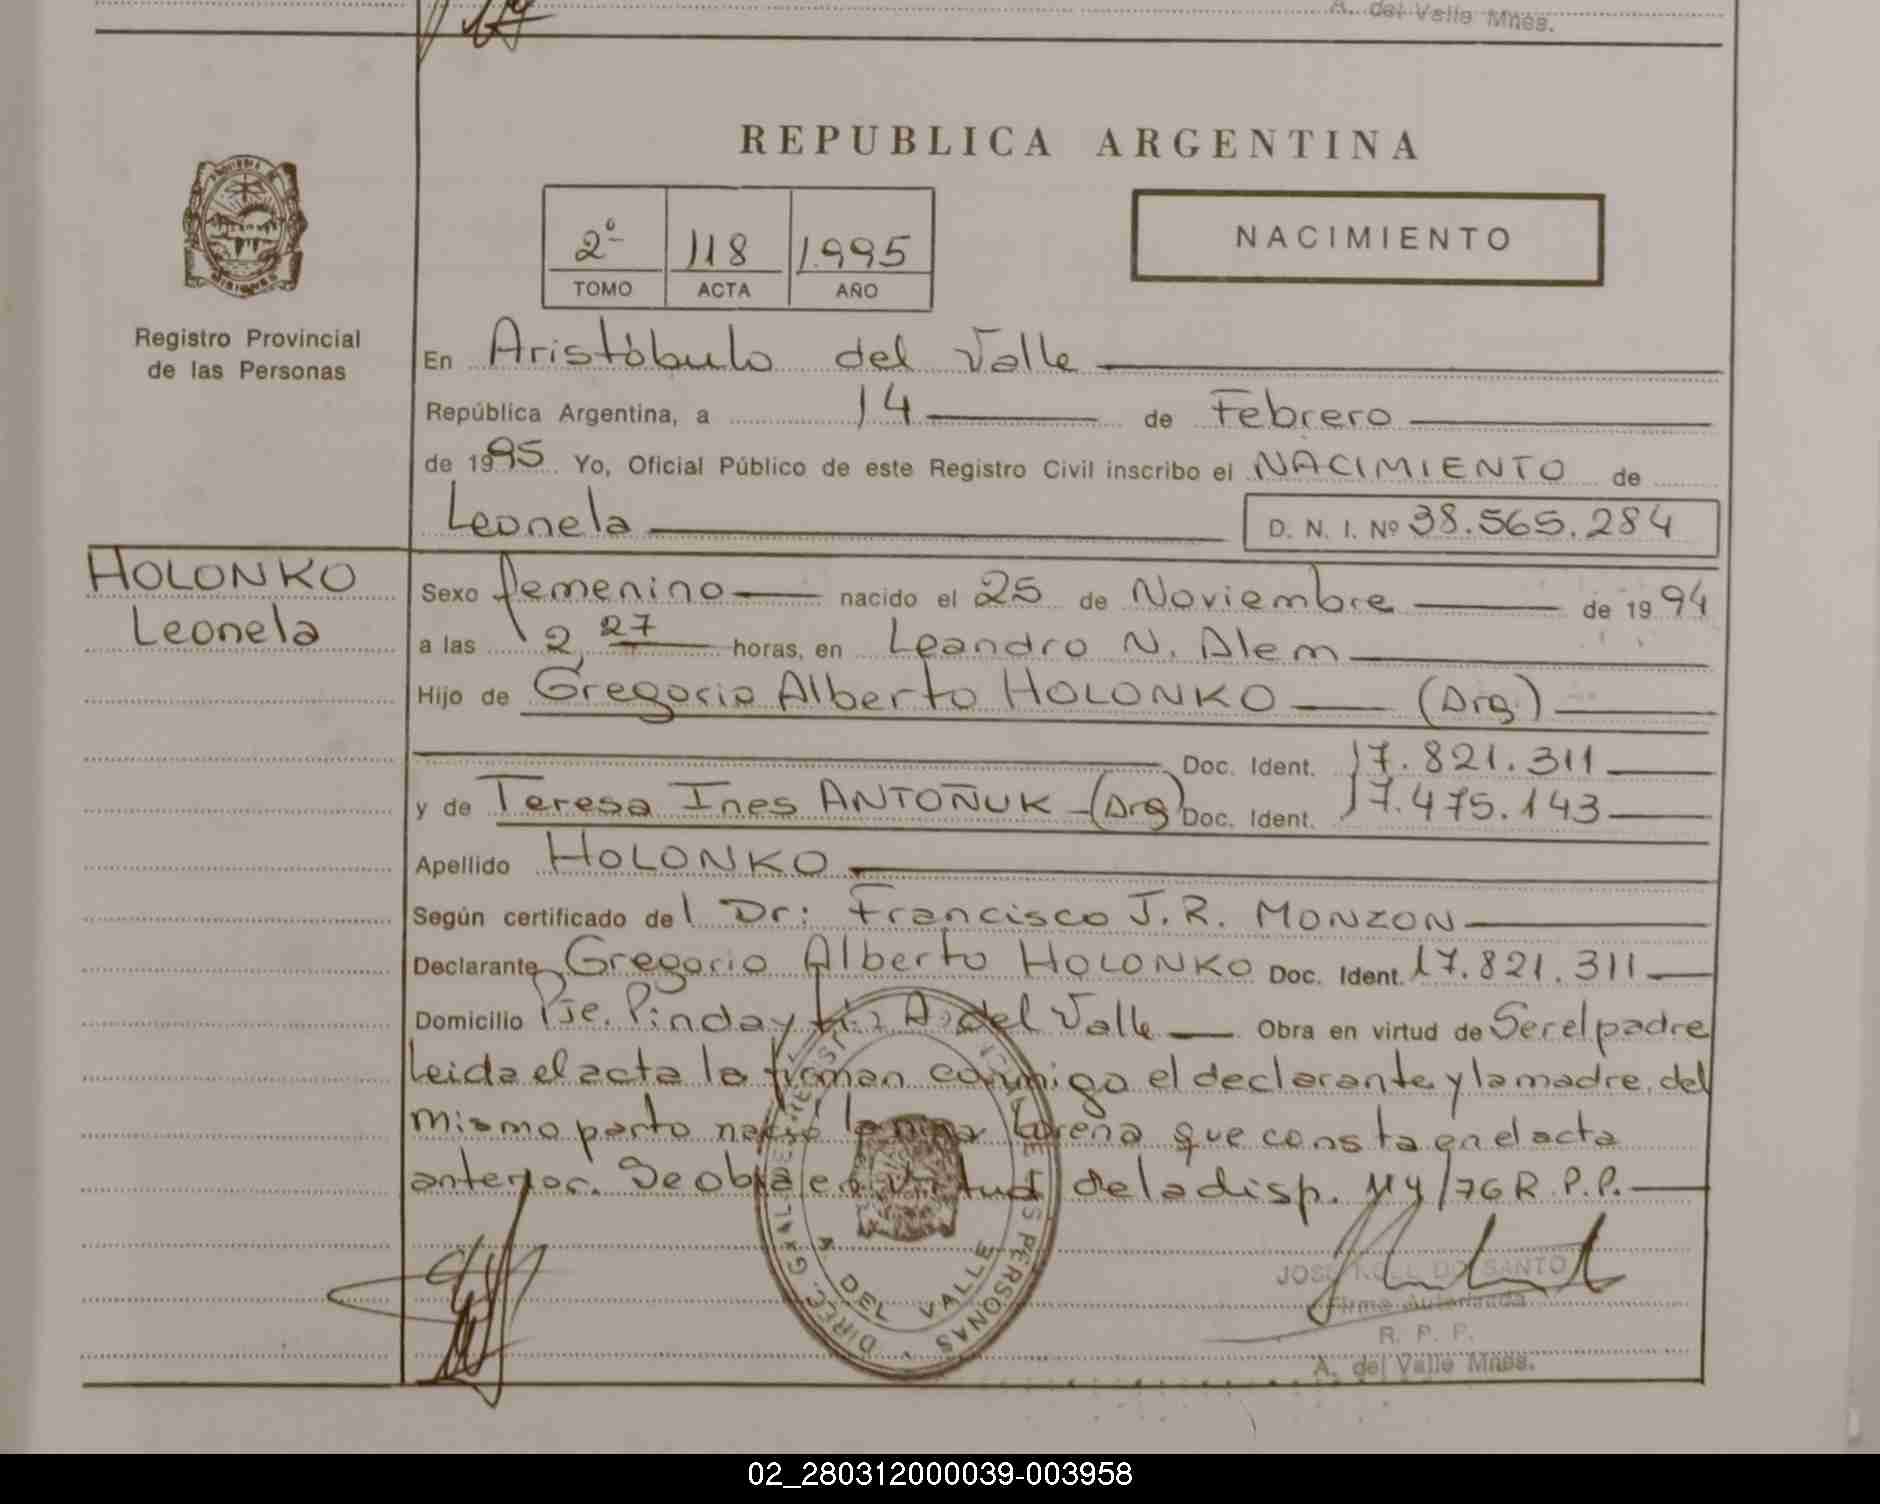 A. del Valle Mnes.
REPUBLICA ARGENTINA
2º 118 1.995
TOMO ACTA AÑO
NACIMIENTO
Registro Provincial
de las Personas
En Aristóbulo del Valle
República Argentina, a 14 de Febrero
de 1995 Yo, Oficial Público de este Registro Civil inscribo el NACIMIENTO de
Leonela D. N. I. Nº 38.565.284
HOLONKO
Leonela
Sexo femenino nacido el 25 de Noviembre de 1994
a las 2,27 horas, en Leandro N. Alem
Hijo de Gregorio Alberto HOLONKO (Arg)
Doc. Ident. 17.821.311
y de Teresa Ines ANTOÑUK (Arg) Doc. Ident. 17.475.143
Apellido HOLONKO
Según certificado del Dr: Francisco J. R. MONZON
Declarante Gregorio Alberto HOLONKO Doc. Ident. 17.821.311
Domicilio Pje. Pindayti A. del Valle Obra en virtud de Ser el padre
Leida el acta la firman conmigo el declarante y la madre. del
mismo parto nació la niña Lorena que consta en el acta
anterior. Se obra en virtud de la disp. 114/76 R.P.P.
A DEL VALLE
PERSONAS
Firma Autorizada
R. P. P.
A. del Valle Mnes.
02_280312000039-003958